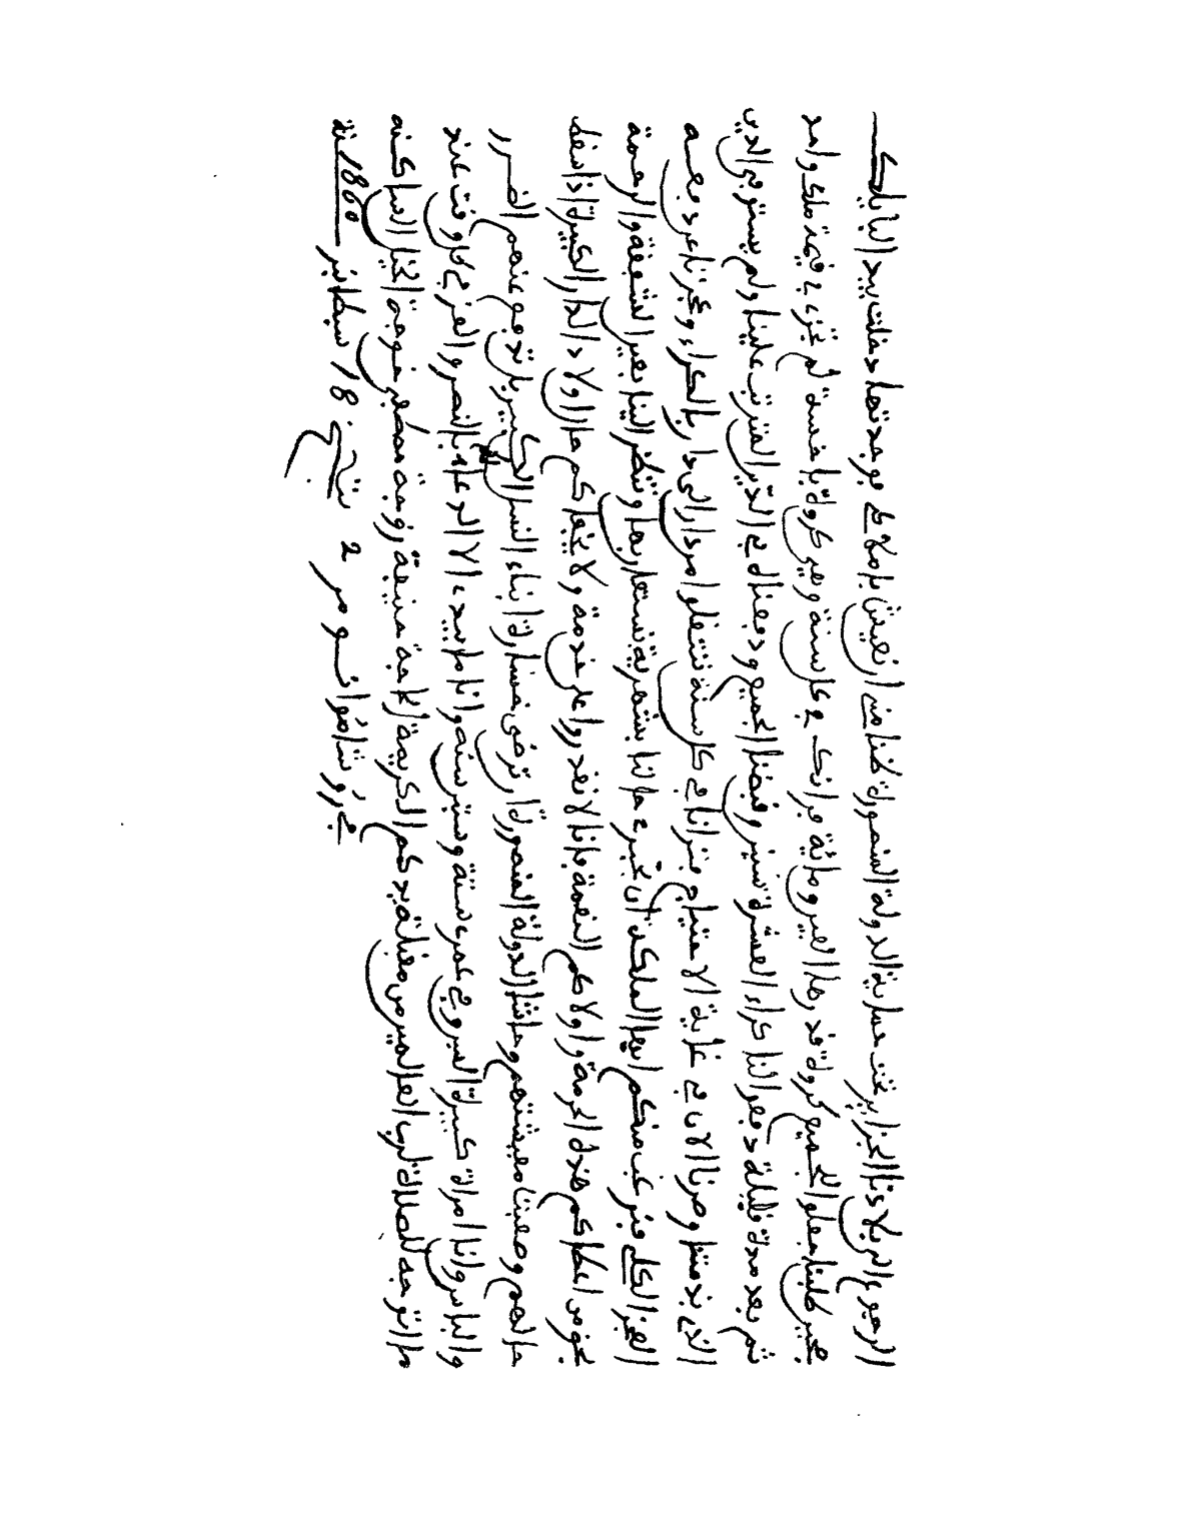 الرجوع الى بلادنا الجزاير تحت حماية الدولة المنصورة ظنا مني ان نعيش باملاكي فوجدتها دخلت بيد البايلك
فحين طلبنا جعلوا الجميع كروة قدرها الفين ومائة فرانك في كل سنة وهي كروة باخسة لم تجزي في قيمة ملك واحد
ثم بعد مدة قليلة دفعوا لنا كراء العشرة سنين وقبضنا الجميع ودفعناه في الدّين المترتب علينا ولم يستوفي الدين
الذي بذمتنا وصرنا الان في غاية الاحتياج فترانا في كل سنة ننتقلوا من دار الى دار بالكراء وعجزنا عن دفعه
العجز الكلي فنرغب منكم ايها الملكة ان تخبري حالنا بشهرية نستعان بها وتنظر الينا بعين الشفقة والرحمة
بحق من اعطاكم هذه الحرمة واولاكم النعمة فاننا لا نقدروا على خدمة ولا يخفاكم حال اولاد الدار الكبيرة اذا سقط
حالهم وصعبتنا معيشتهم وحاشا الدولة المنصورة ان ترضى خسارة ابناء الناس الكبير بل تدفع عنهم الضرر
والباس وانا امراة كبيرة السن وفي عمري ستة وستين سنة وانا ما بيدي الا الدعاء بالنصر والعز في كل وقت عند
ما اتوجه للصلاة لرب العالمين من مقبلة يدكم الكريمة الحاجة حنيفة زوجة مصطفى خوجة الخيل الساكنة
في رو شانوانسو مر 2 بتاريخ 18 سبطانبر سنة 1860